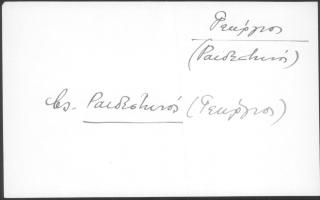 Γεώργιος
(Ραιδεστινός)
βλ. Ραιδεστινός (Γεώργιος)